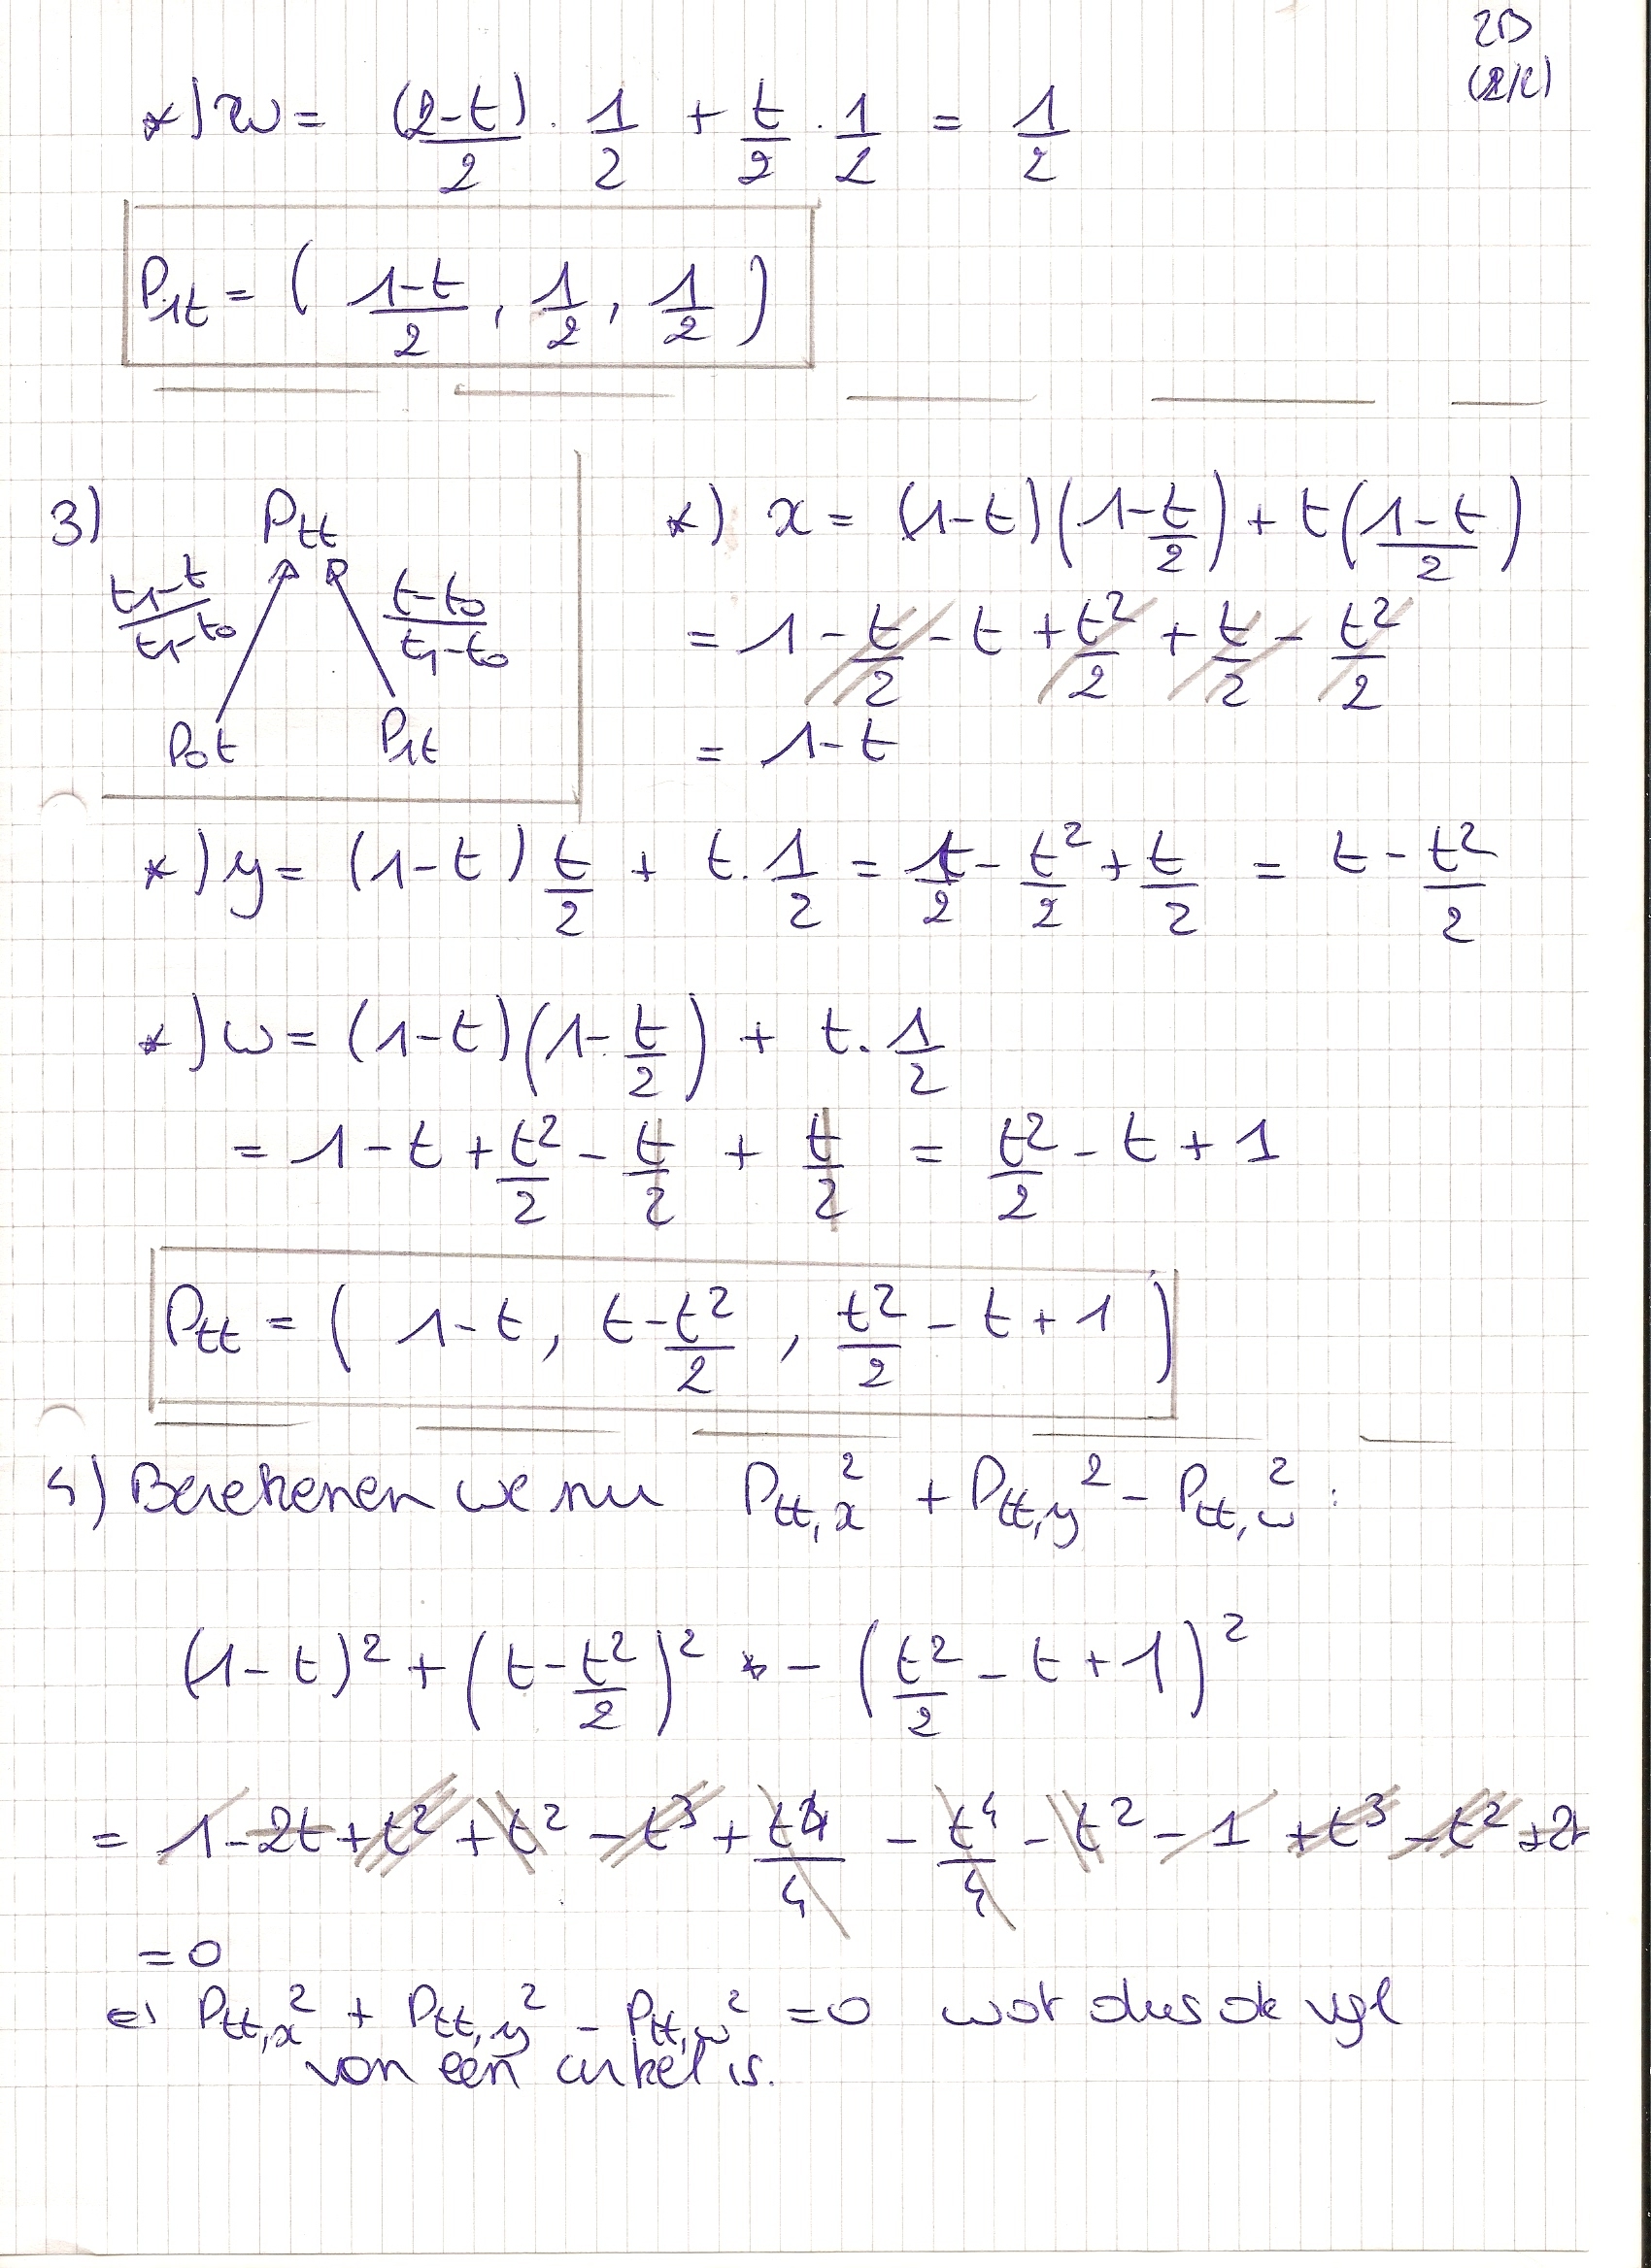 2B
(2/2)
*) w = (2-t)/2 . 1/2 + t/2 . 1/2 = 1/2
P1t = ( 1-t/2 , 1/2 , 1/2 )
3) Ptt
t1-t/t1-t0 t-t0/t1-t0
P0t P1t
*) x = (1-t)(1-t/2) + t(1-t/2)
= 1 - t/2 - t + t²/2 + t/2 - t²/2
= 1-t
*) y = (1-t) t/2 + t . 1/2 = t/2 - t²/2 + t/2 = t - t²/2
*) w = (1-t)(1-t/2) + t . 1/2
= 1 - t + t²/2 - t/2 + t/2 = t²/2 - t + 1
Ptt = ( 1-t, t-t²/2 , t²/2 - t + 1 )
4) Berekenen we nu Ptt,x² + Ptt,y² - Ptt,w² :
(1-t)² + (t-t²/2)² - (t²/2 - t + 1)²
= 1 - 2t + t² + t² - t³ + t⁴/4 - t⁴/4 - t² - 1 + t³ - t² + 2t
= 0
⇒ Ptt,x² + Ptt,y² - Ptt,w² = 0 wat dus de vgl
van een cirkel is.